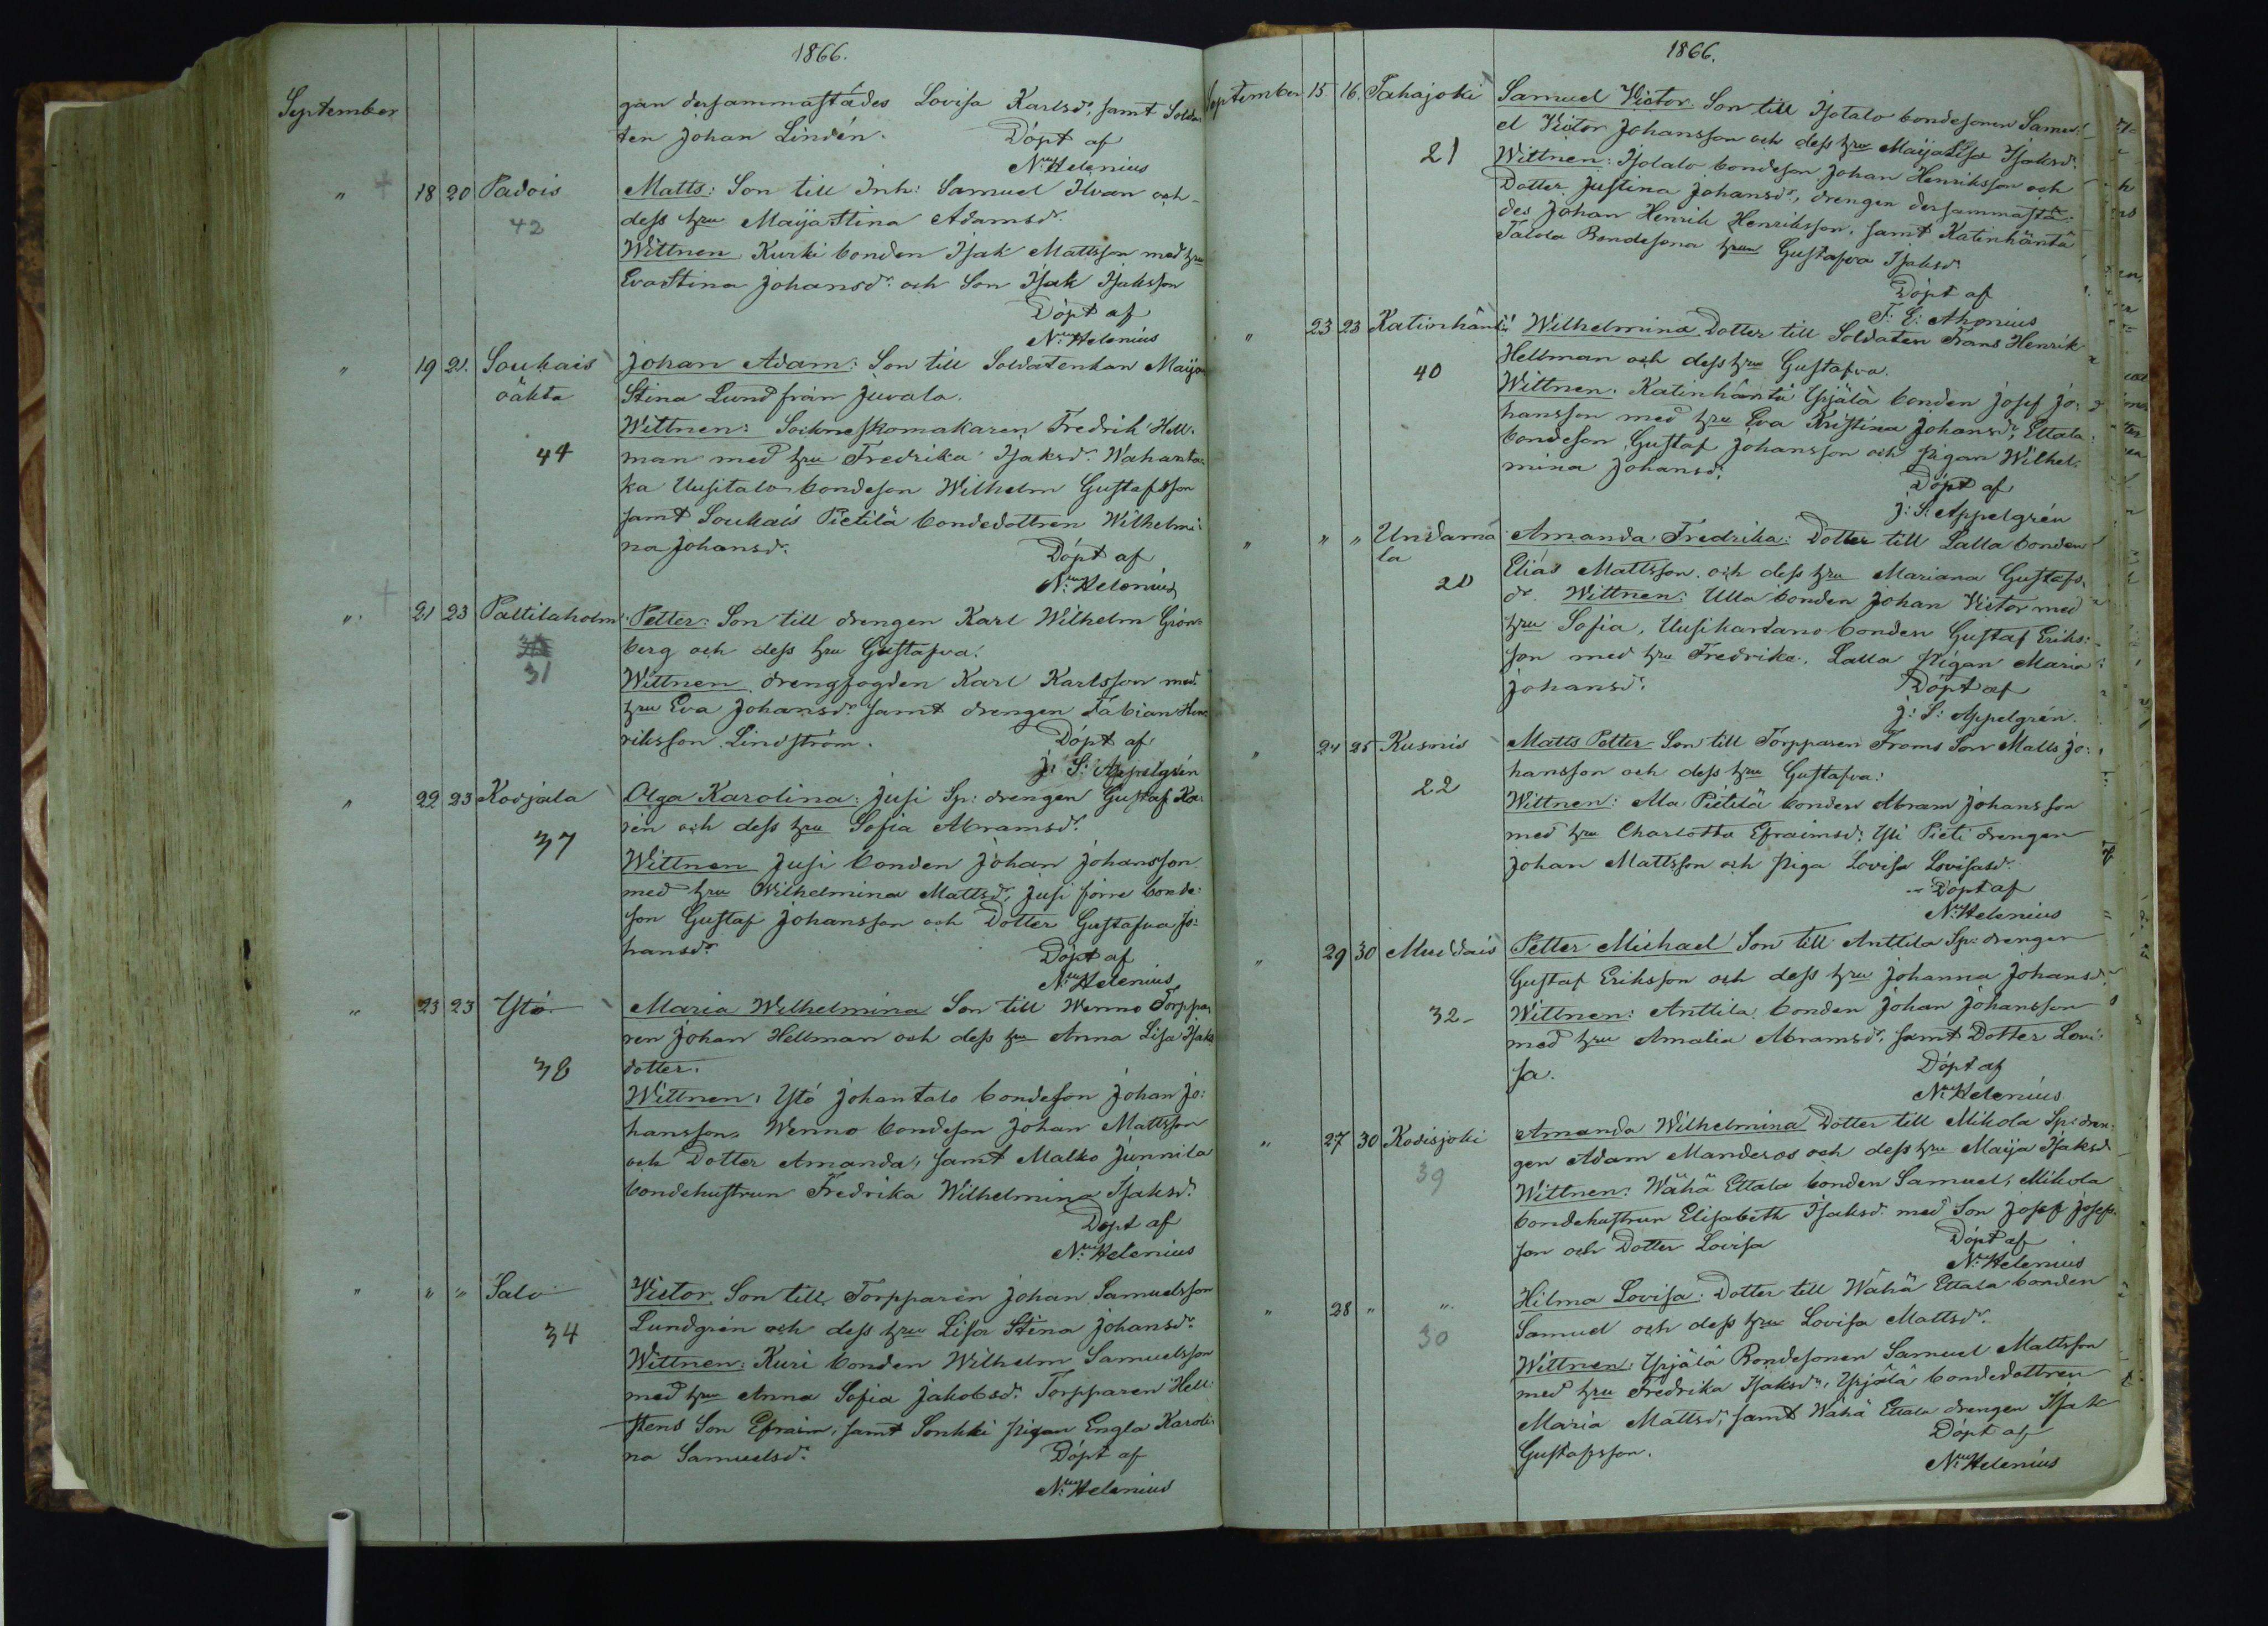 1866.
September
gan dersammastädes Lovisa Karlsdr, samt Solda-
ten Johan Lindén. Döpt af
N:us Helenius
" 18 20 Padois Matts: Son till Inh: Samuel Ilvan och
42 dess hru Maija Stina Adamsdr.
Wittnen, Kurki bonden Isak Mattsson med hru
Eva Stina Johansdr. och Son Isak Isaksson
Döpt af
N:us Helenius
" 19 21. Soukais Johan Adam: Son till Soldatenkan Maija
oäkta Stina Lund från Juvala.
Wittnen: Sockneskomakaren Fredrik Hell-
44 man med hru Fredrika Isaksdr. Wahanta-
ka Uusitalo bondeson Wilhelm Gustafsson
samt Soukais Pietilä bondedottren Wilhelmi-
na Johansdr. Döpt af
N:us Helenius
" 21 23 Paltilaholm Petter: Son till drengen Karl Wilhelm Grön-
berg och dess hru Gustafva.
31 Wittnen, drengfogden Karl Karlsson med
hru Eva Johansdr. samt drengen Fabian Hen-
riksson Lindström. Döpt af
J: S: Appelgrén
" 22 23 Kodjala Olga Karolina: Jusi Sp: drengen Gustaf Ka-
rén och dess hru Sofia Abramsdr.
37 Wittnen Jusi bonden Johan Johansson
med hru Wilhelmina Mattsdr, Jusi förre bonde-
son Gustaf Johansson och Dotter Gustafva Jo-
hansdr. Döpt af
N:us Helenius
" 23 23 Ytö Maria Wilhelmina Son till Wenno Torppa-
ren Johan Hellman och dess hru Anna Lisa Isaks
38 dotter.
Wittnen, Ytö Johantalo bondeson Johan Jo-
hansson, Wenno bondeson Johan Mattsson
och Dotter Amanda, samt Malko Junnila
bondehustrun Fredrika Wilhelmina Isaksdr.
Döpt af
N:us Helenius
" " " Salo Victor, Son till Torpparen Johan Samuelsson
34 Lundgrén och dess hru Lisa Stina Johansdr.
Wittnen: Kuri bonden Wilhelm Samuelsson
med hru Anna Sofia Jakobsdr. Torpparen Hell-
stens Son Efraim, samt Sonkki pigan Engla Karoli-
na Samuelsdr. Döpt af
N:us Helenius
1866.
September 15. 16. Tahajoki Samuel Victor Son till Isotalo bondesonen Samu-
el Victor Johansson och dess hru Maija Lisa Isaksdr.
21 Wittnen: Isotalo bondeson Johan Henriksson och
Dotter Justina Johansdr, drengen dersammastä-
des Johan Henrik Henriksson, samt Katinhäntä
Talola Bondesona hrun Gustafva Isaksdr
Döpt af
F: E: Ahonius
" 23 23 Katinhäntä Wilhelmina Dotter till Soldaten Frans Henrik
Hellman och dess hru Gustafva.
40 Wittnen: Katinhäntä Ypjälä bonden Josef Jo-
hansson med hru Eva Kristina Johansdr, Ettala
bondeson Gustaf Johansson och pigan Wilhel-
mina Johansdr. Döpt af
J: S: Appelgrén
" " " Undama Amanda Fredrika: Dotter till Lalla bonden
la Elias Mattsson och dess hru Mariana Gustafs-
20 dr. Wittnen: Ulla bonden Johan Victor med
hru Sofia, Uusikartano bonden Gustaf Eriks-
son med hru Fredrika, Lalla pigan Maria
Johansdr. Döpt af
J: S: Appelgrén.
" 24 25 Kusnis Matts Petter Son till Torpparen Froms Son Matts Jo-
hansson och dess hru Gustafva.
22 Wittnen: Ala Pietilä bonden Abram Johansson
med hru Charlotta Efraimsdr. Yli Pieti drengen
Johan Mattsson och piga Lovisa Lovisasdr.
Döpt af
N:us Helenius
" 29 30 Muddais Petter Michael Son till Anttila Sp: drengen
Gustaf Eriksson och dess hru Johanna Johansdr.
32- Wittnen: Anttila bonden Johan Johansson
med hru Amalia Abramsdr, samt Dotter Lovi-
sa. Döpt af
N:us Helenius
" 27 30 Kodisjoki Amanda Wilhelmina Dotter till Mikola Sp: dren-
gen Adam Manderos och dess hru Maija Isaksdr
39 Wittnen: Wähä Ettala bonden Samuel, Mikola
bondehustrun Elisabeth Isaksdr. med Son Josef Josefs-
son och Dotter Lovisa Döpt af
N:us Helenius
" 28 " " Hilma Lovisa: Dotter till Wähä Ettala bonden
30 Samuel och dess hru Lovisa Mattsdr.
Wittnen: Ypjälä Bondesonen Samuel Mattsson
med hru Fredrika Isaksdr, Ypjälä bondedottren
Maria Mattsdr, samt Wähä Ettala drengen Isak
Gustafsson. Döpt af
N:us Helenius